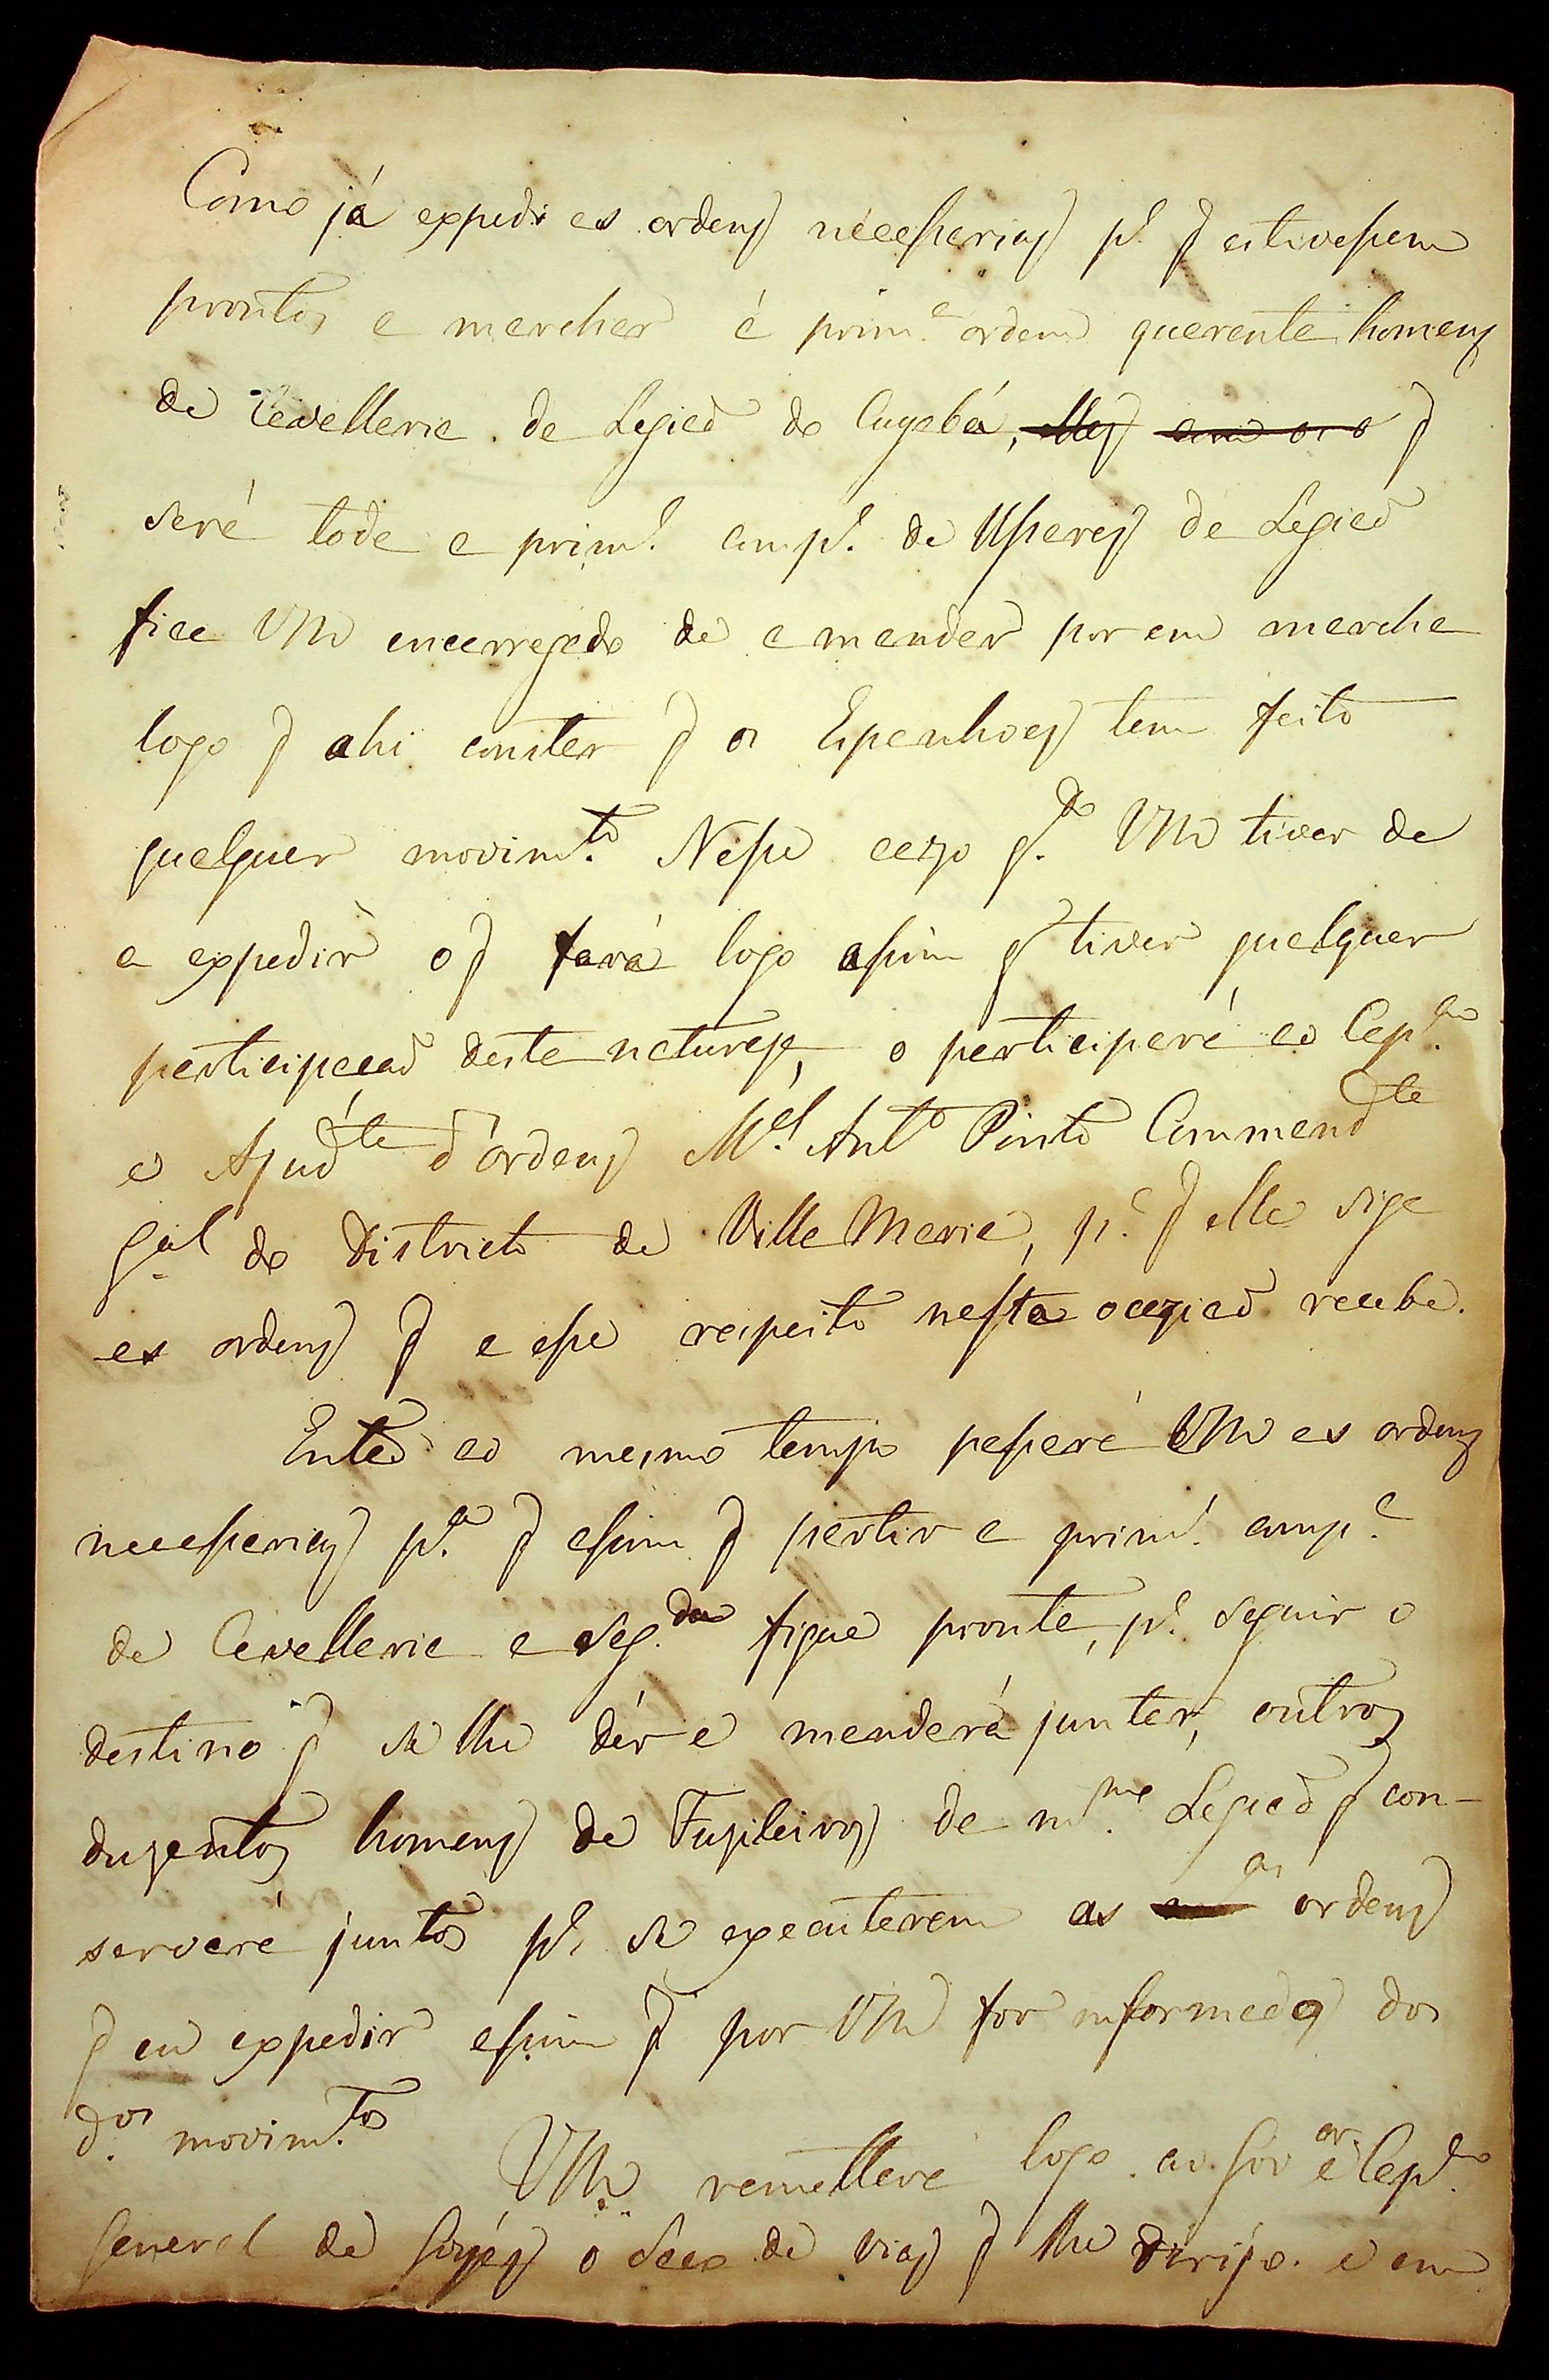 Como já expedi as ordens necessarias p.ª q̃ estivessem
promtos a marchar á prim.ª ordem quarenta homens
de Cavallaria da Legiaõ do Cuyabá, q̃
será toda a prim.ª comp.ª de Ussares da Legiaõ
fica VM encarregado de a mandar por em marcha
logo q̃ ahi constar q̃ os Espanhoes tem feito
qualquer movim.to Nesse cazo q.do VM tiver de
a expedir o q̃ fará logo assim q̃ tiver qualquer
participaçaõ desta natureza, o participará ao Cap.am
e Ajud.te d'ordens M.el Ant.o Pinto Commend.te
G.al do Districto de Villa Maria, p.ª q̃ elle siga
as ordens q̃ a esse respeito nesta ocaziaõ recebe.
Entaõ ao mesmo tempo passará VM as ordens
necessarias p.ª q̃ assim q̃ partir a prim.ª comp.ª
de Cavallaria a seg.da fique pronta, p.ª seguir o
destino q̃ se lhe dér e mandará juntar, outros
duzentos homens de Fuzileiros da m.ma Legiaõ q̃ con-
servará juntos p.ª se executarem as ordens
q̃ eu expedir assim q̃ por VM for informado dos
d.os movim.tos
VM remetterá logo ao Gov.or e Cap.am
General de Goyáz o Saco de vias q̃ lhe dirijo. e em